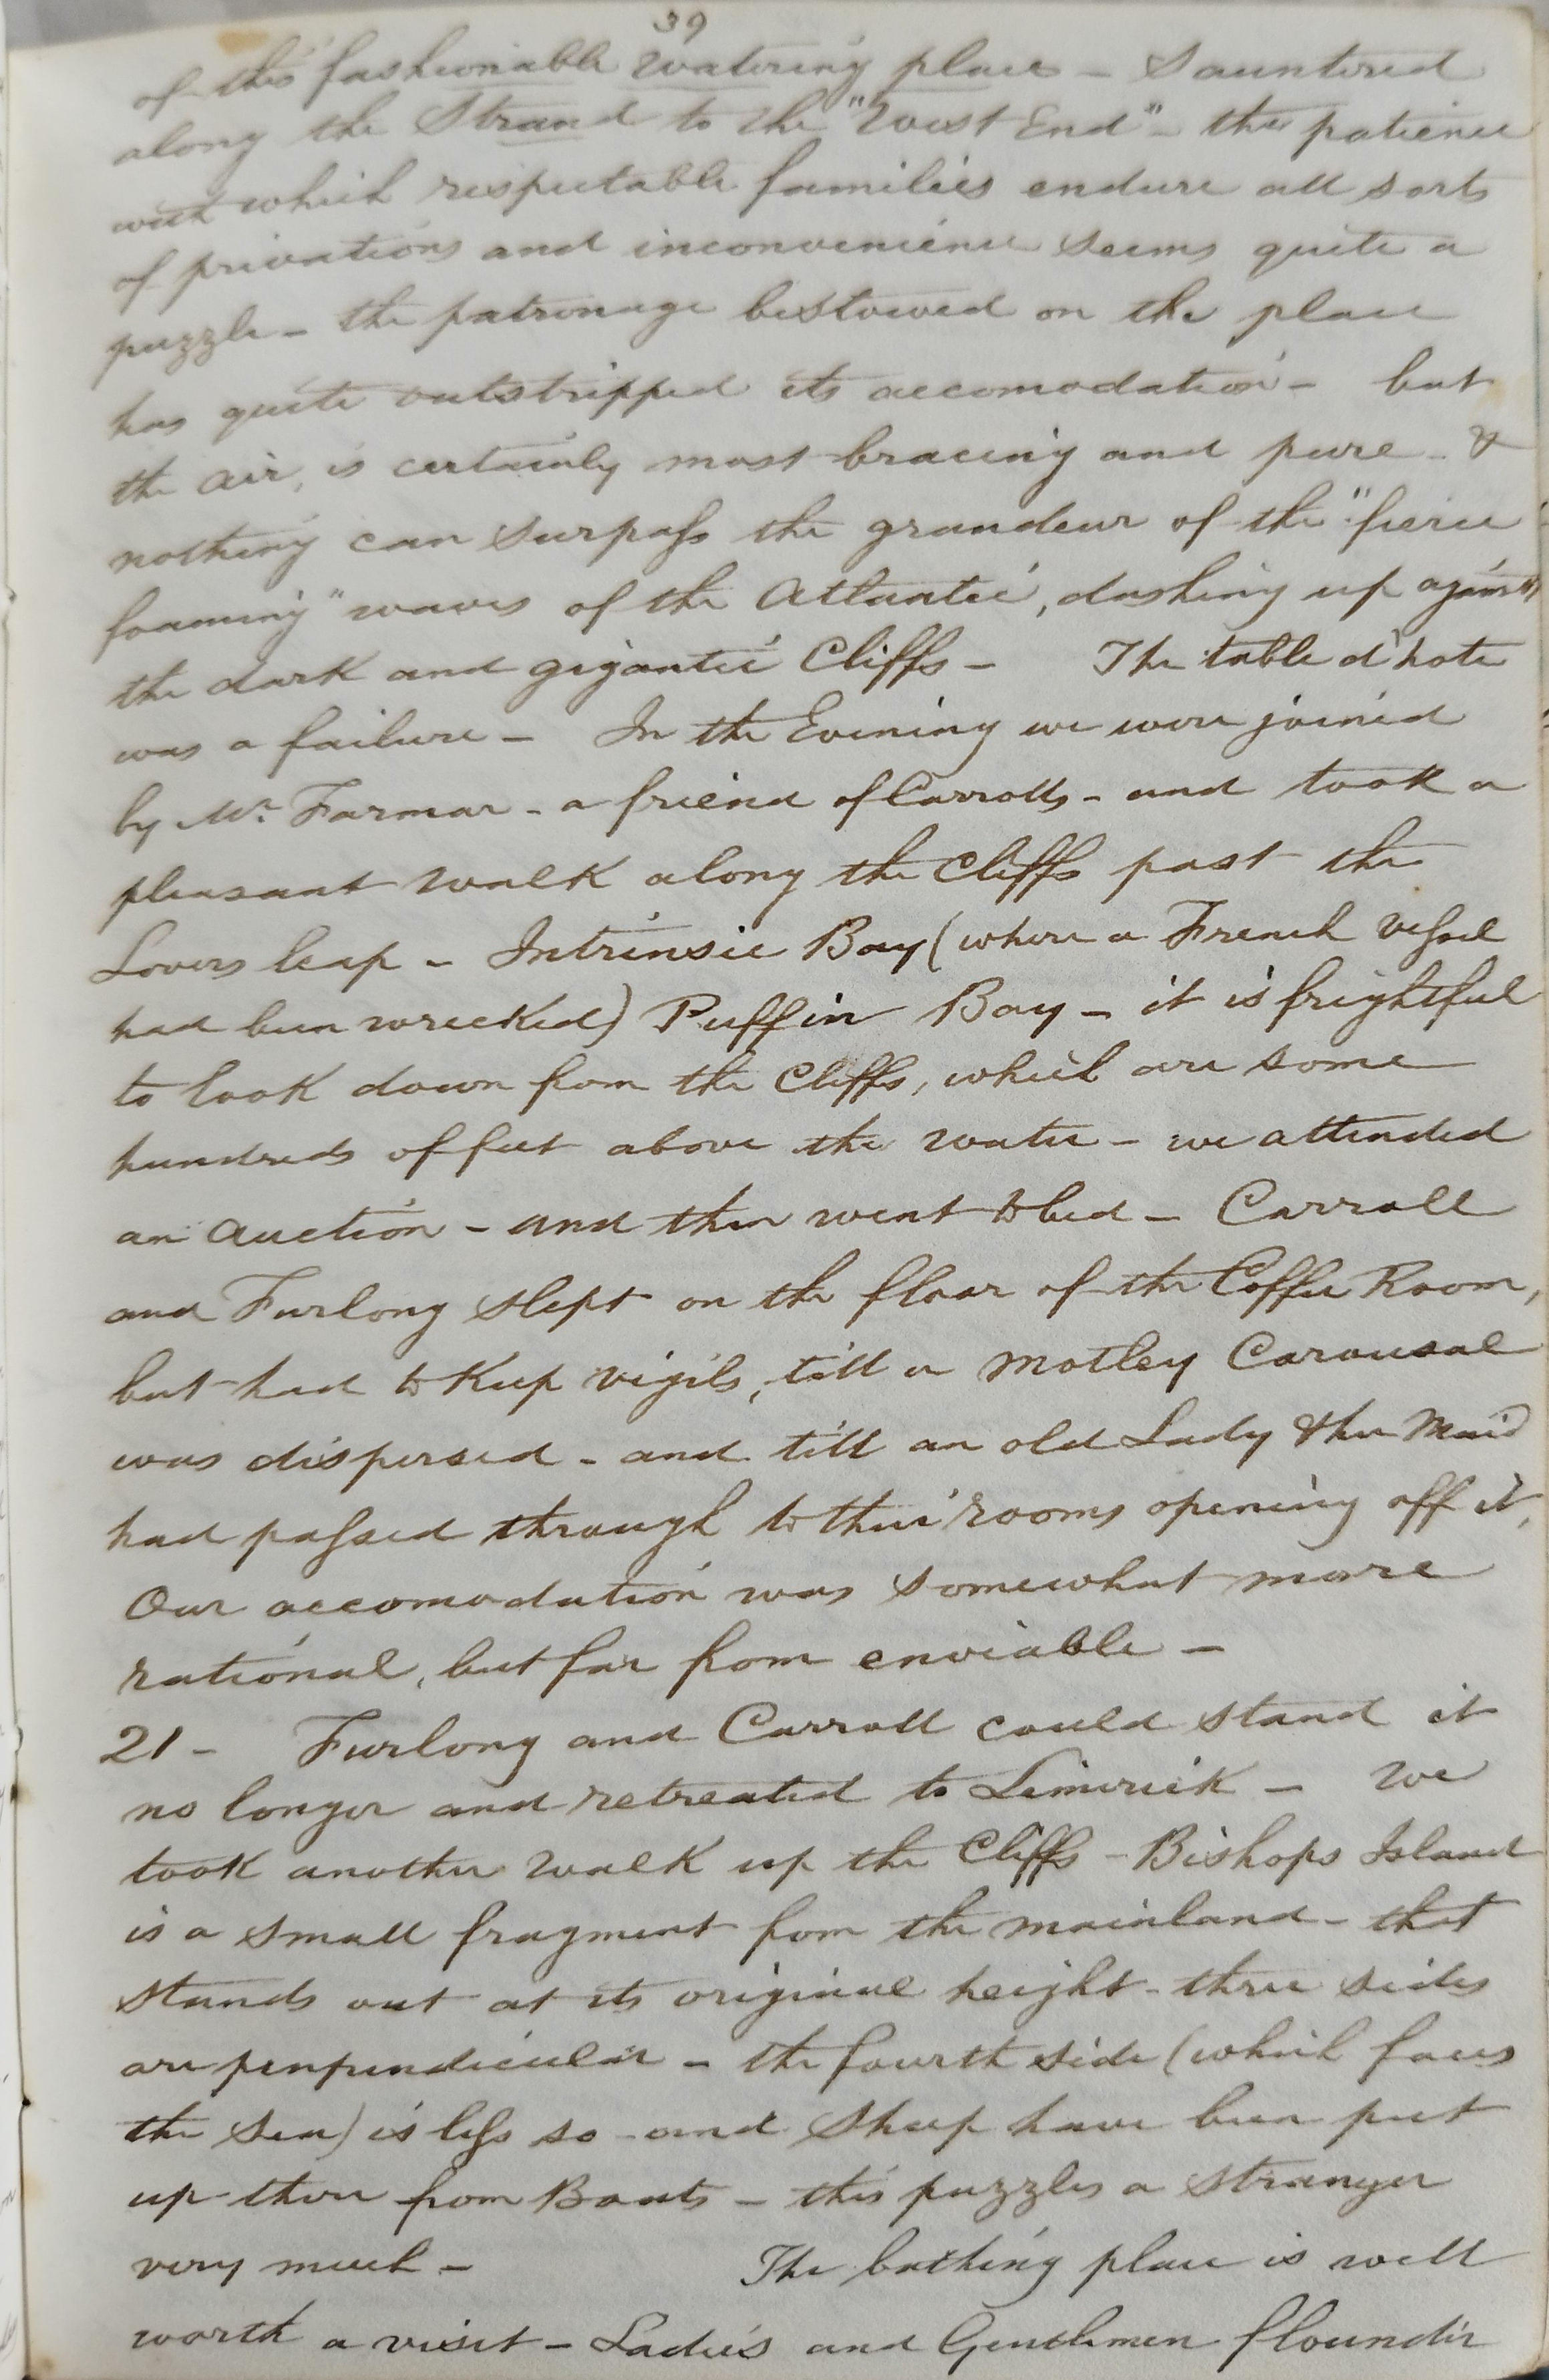 39
of this fashionable watering place - Sauntered
along the Strand to the "West End" - the patience
with which respectable families endure all sorts
of privations and inconvenience seems quite a
puzzle - the patronage bestowed on the place
has quite outstripped its accomodation - but
the air, is certainly most bracing and pure - &
nothing can surpass the grandeur of the "fierce
foaming" waves of the Atlantic, dashing up against
the dark and gigantic Cliffs - The table d'hote
was a failure - In the Evening we were joined
by Mr. Farmar - a friend of Carrolls - and took a
pleasant walk along the Cliffs past the
Lovers leap - Intrinsic Bay (where a French vessel
had been wrecked) Puffin Bay - it is frightful
to look down from the Cliffs, which are some
hundreds of feet above the water - we attended
an Auction - and then went to bed - Carroll
and Furlong slept on the floor of the Coffee Room,
but had to keep vigils, till a motley Carousal
was dispersed - and till an old Lady & her Maid
had passed through to their rooms opening off it,
Our accomodation was somewhat more
rational, but far from enviable -
21 - Furlong and Carroll could stand it
no longer and retreated to Limerick - We
took another walk up the Cliffs - Bishops Island
is a small fragment from the mainland - that
stands out at its original height - three sides
are penpendicular - the fourth side (which faces
the Sea) is less so - and Sheep have been put
up there from Boats - this puzzles a stranger
very much - The bathing place is well
worth a visit - Ladies and Gentlemen flounder